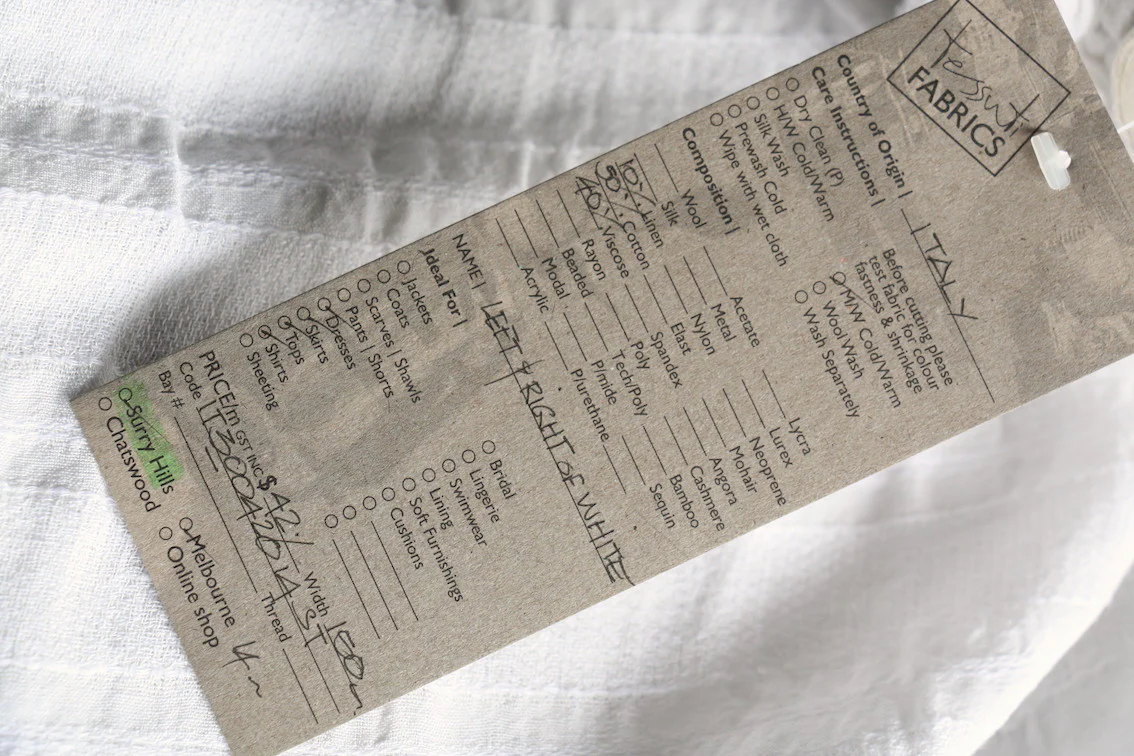 tessuti
FABRICS
Country of Origin | ITALY
Care Instructions |
Dry Clean (P)
H/W Cold/Warm
Silk Wash
Prewash Cold
Wipe with wet cloth
Before cutting please
test fabric for colour
fastness & shrinkage
M/W Cold/Warm
Wool Wash
Wash Separately
Composition |
Wool
Silk
10% Linen
50% Cotton
40% Viscose
Rayon
Beaded
Modal
Acrylic
Acetate
Metal
Nylon
Elast
Spandex
Poly
Tech/Poly
P/mide
P/urethane
Lycra
Lurex
Neoprene
Mohair
Angora
Cashmere
Bamboo
Sequin
NAME | LEFT & RIGHT OF WHITE
Ideal For |
Jackets
Coats
Scarves | Shawls
Pants | Shorts
Dresses
Skirts
Tops
Shirts
Sheeting
Bridal
Lingerie
Swimwear
Lining
Soft Furnishings
Cushions
PRICE/m GST INC. $ 42 Width 150
Code IT30042014 ST
Bay # Thread
Surry Hills
Chatswood
Melbourne 4m
Online shop